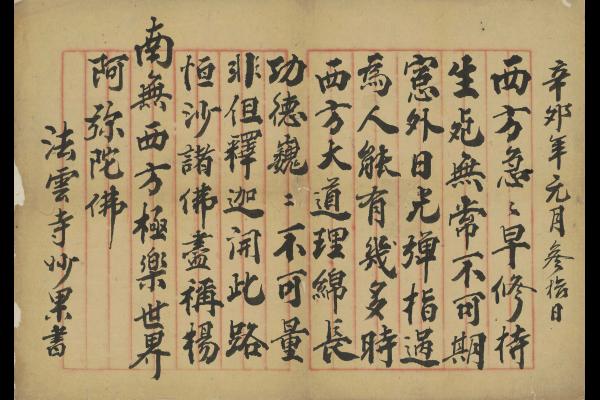 辛卯年元月叁拾日
西方急〻早修持
生死無常不可期
窓外日光彈指過
為人能有幾多時
西方大道理綿長
功德巍〻不可量
非但釋迦開此路
恒沙諸佛盡稱楊
南無西方極樂世界
阿弥陀佛
法雲寺妙果書